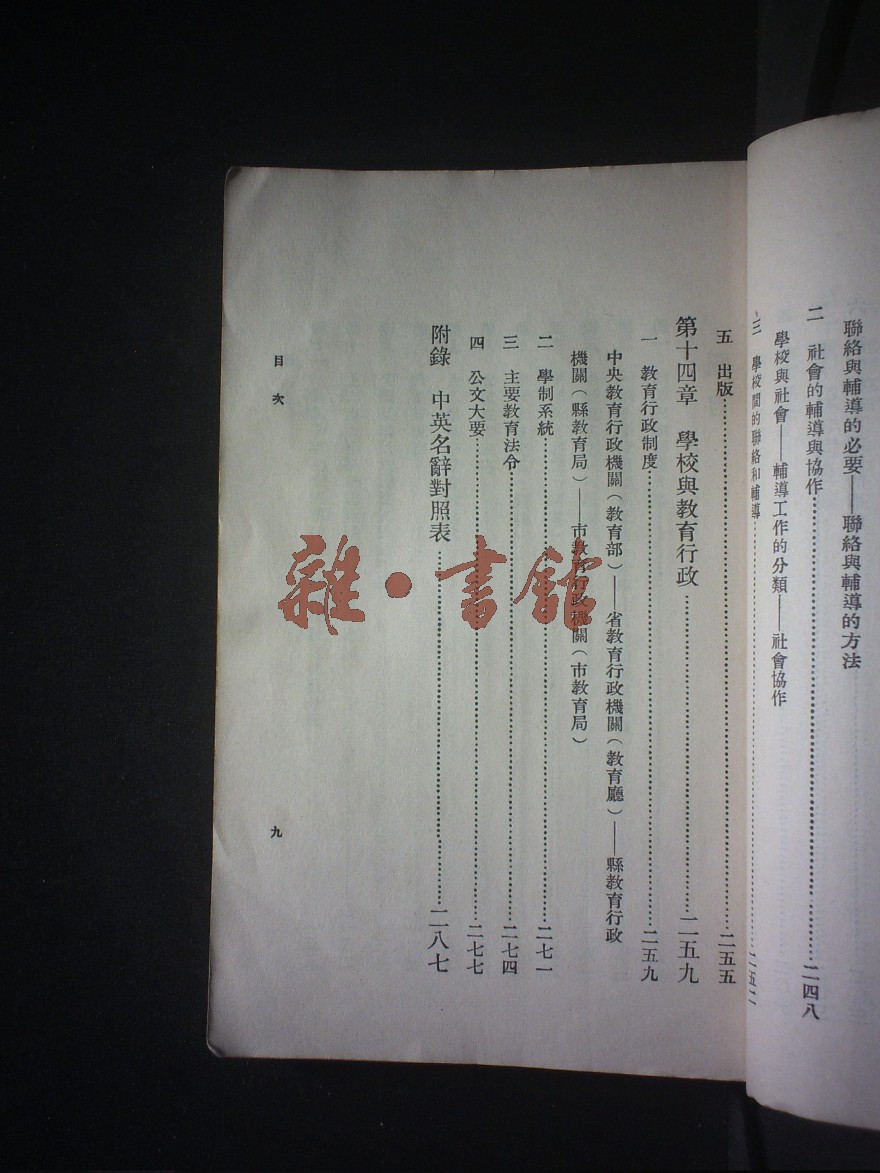 聯絡與輔導的必要——聯絡與輔導的方法
二 社會的輔導與協作……二四八
學校與社會——輔導工作的分類——社會協作
三 學校間的聯絡和輔導……二五二
五 出版……二五五
第十四章 學校與教育行政……二五九
一 教育行政制度……二五九
中央教育行政機關(教育部)——省教育行政機關(教育廳)——縣教育行政
機關(縣教育局)——市教育行政機關(市教育局)
二 學制系統……二七一
三 主要教育法令……二七四
四 公文大要……二七七
附錄 中英名辭對照表……二八七
目次
九
雜·書館